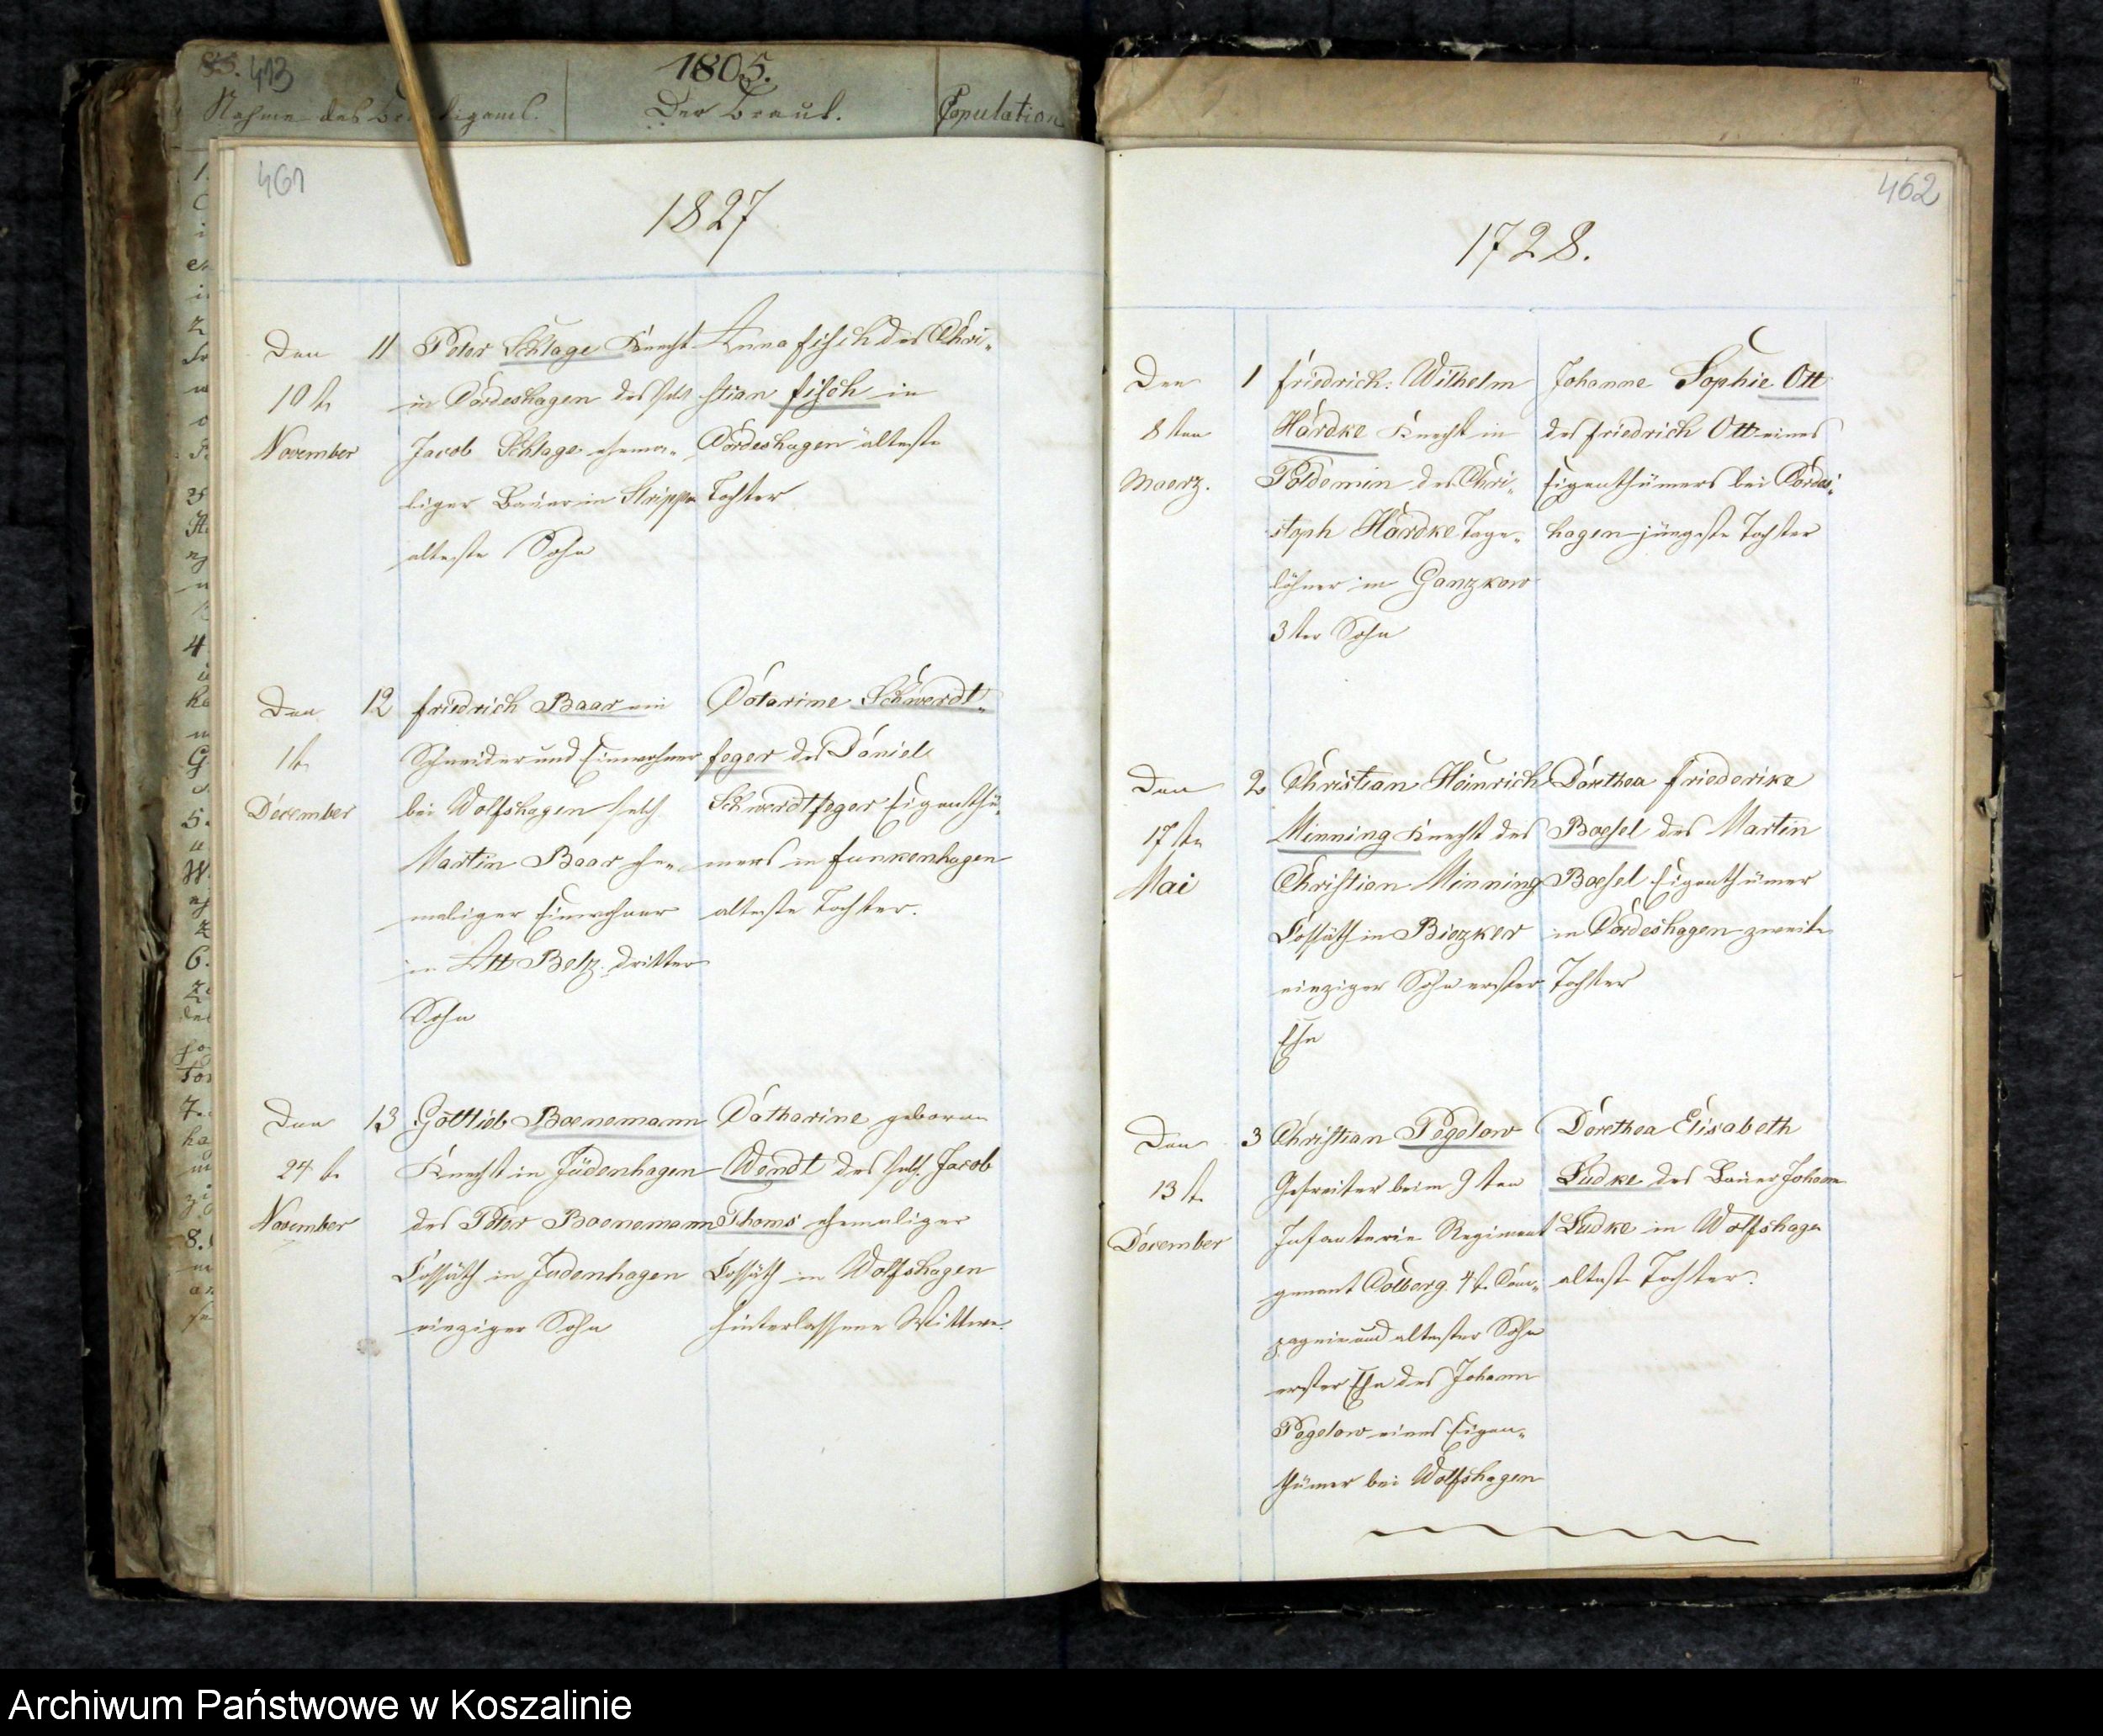 85. 413
1805.
Nahme des Bräutigams.
Der Braut.
Copulation
461
1827
Den 11 Peter Schlage Knecht
in Cordeshagen des sel.
Jacob Schlage ehema-
liger Bauer in Strippo
alteste Sohn
10 t
November
Anna Fisch des Chri-
stian Fisch in
Cordeshagen älteste
Tochter
Den 12 Friedrich Baar ein
Schneider und Einwohner
bei Wolfshagen sel.
Martin Baar ehe-
maliger Einwohner
in Alt Belz dritter
Sohn
1 t
December
Catarine Schwerdt-
feger des Daniel
Schwerdtfeger Eigenthü-
mers in Funkenhagen
alteste Tochter.
Den 13 Gottlieb Boenemann
Knecht in Jüdenhagen
des Peter Boenemann
Cossäth in Judenhagen
einziger Sohn
24 t
November
Catharine geborene
Wendt des sel. Jacob
Thoms ehemaliger
Cossäth in Wolfshagen
hinterlassene Wittwe.
462
1728.
Den 1 Friedrich Wilhelm
Hardke Knecht in
Poldemin des Chri-
stoph Hardke Tage-
löhner in Ganzkow
3ter Sohn
8ten
Maerz.
Johanne Sophie Ott
des Friedrich Ott eines
Eigenthümers bei Cordes-
hagen jüngste Tochter
Den 2 Christian Heinrich
Minning Knecht des
Christian Minning
Cossäth in Biezker
einziger Sohn erster
Ehe
17 te
Mai
Dorthea Friederike
Boesel des Martin
Boesel Eigenthümer
in Cordeshagen zweite
Tochter
Den 3 Christian Pegelow
Gefreiter beim 9ten
Infanterie Regiment
genant Colberg 4 t. Com-
pagnie und altester Sohn
erster Ehe des Johann
Pegelow eines Eigen-
thümer bei Wolfshagen
13 t
December
Dorethea Elisabeth
Ludke des Bauer Johann
Ludke in Wolfshagen
alteste Tochter.
Archiwum Państwowe w Koszalinie